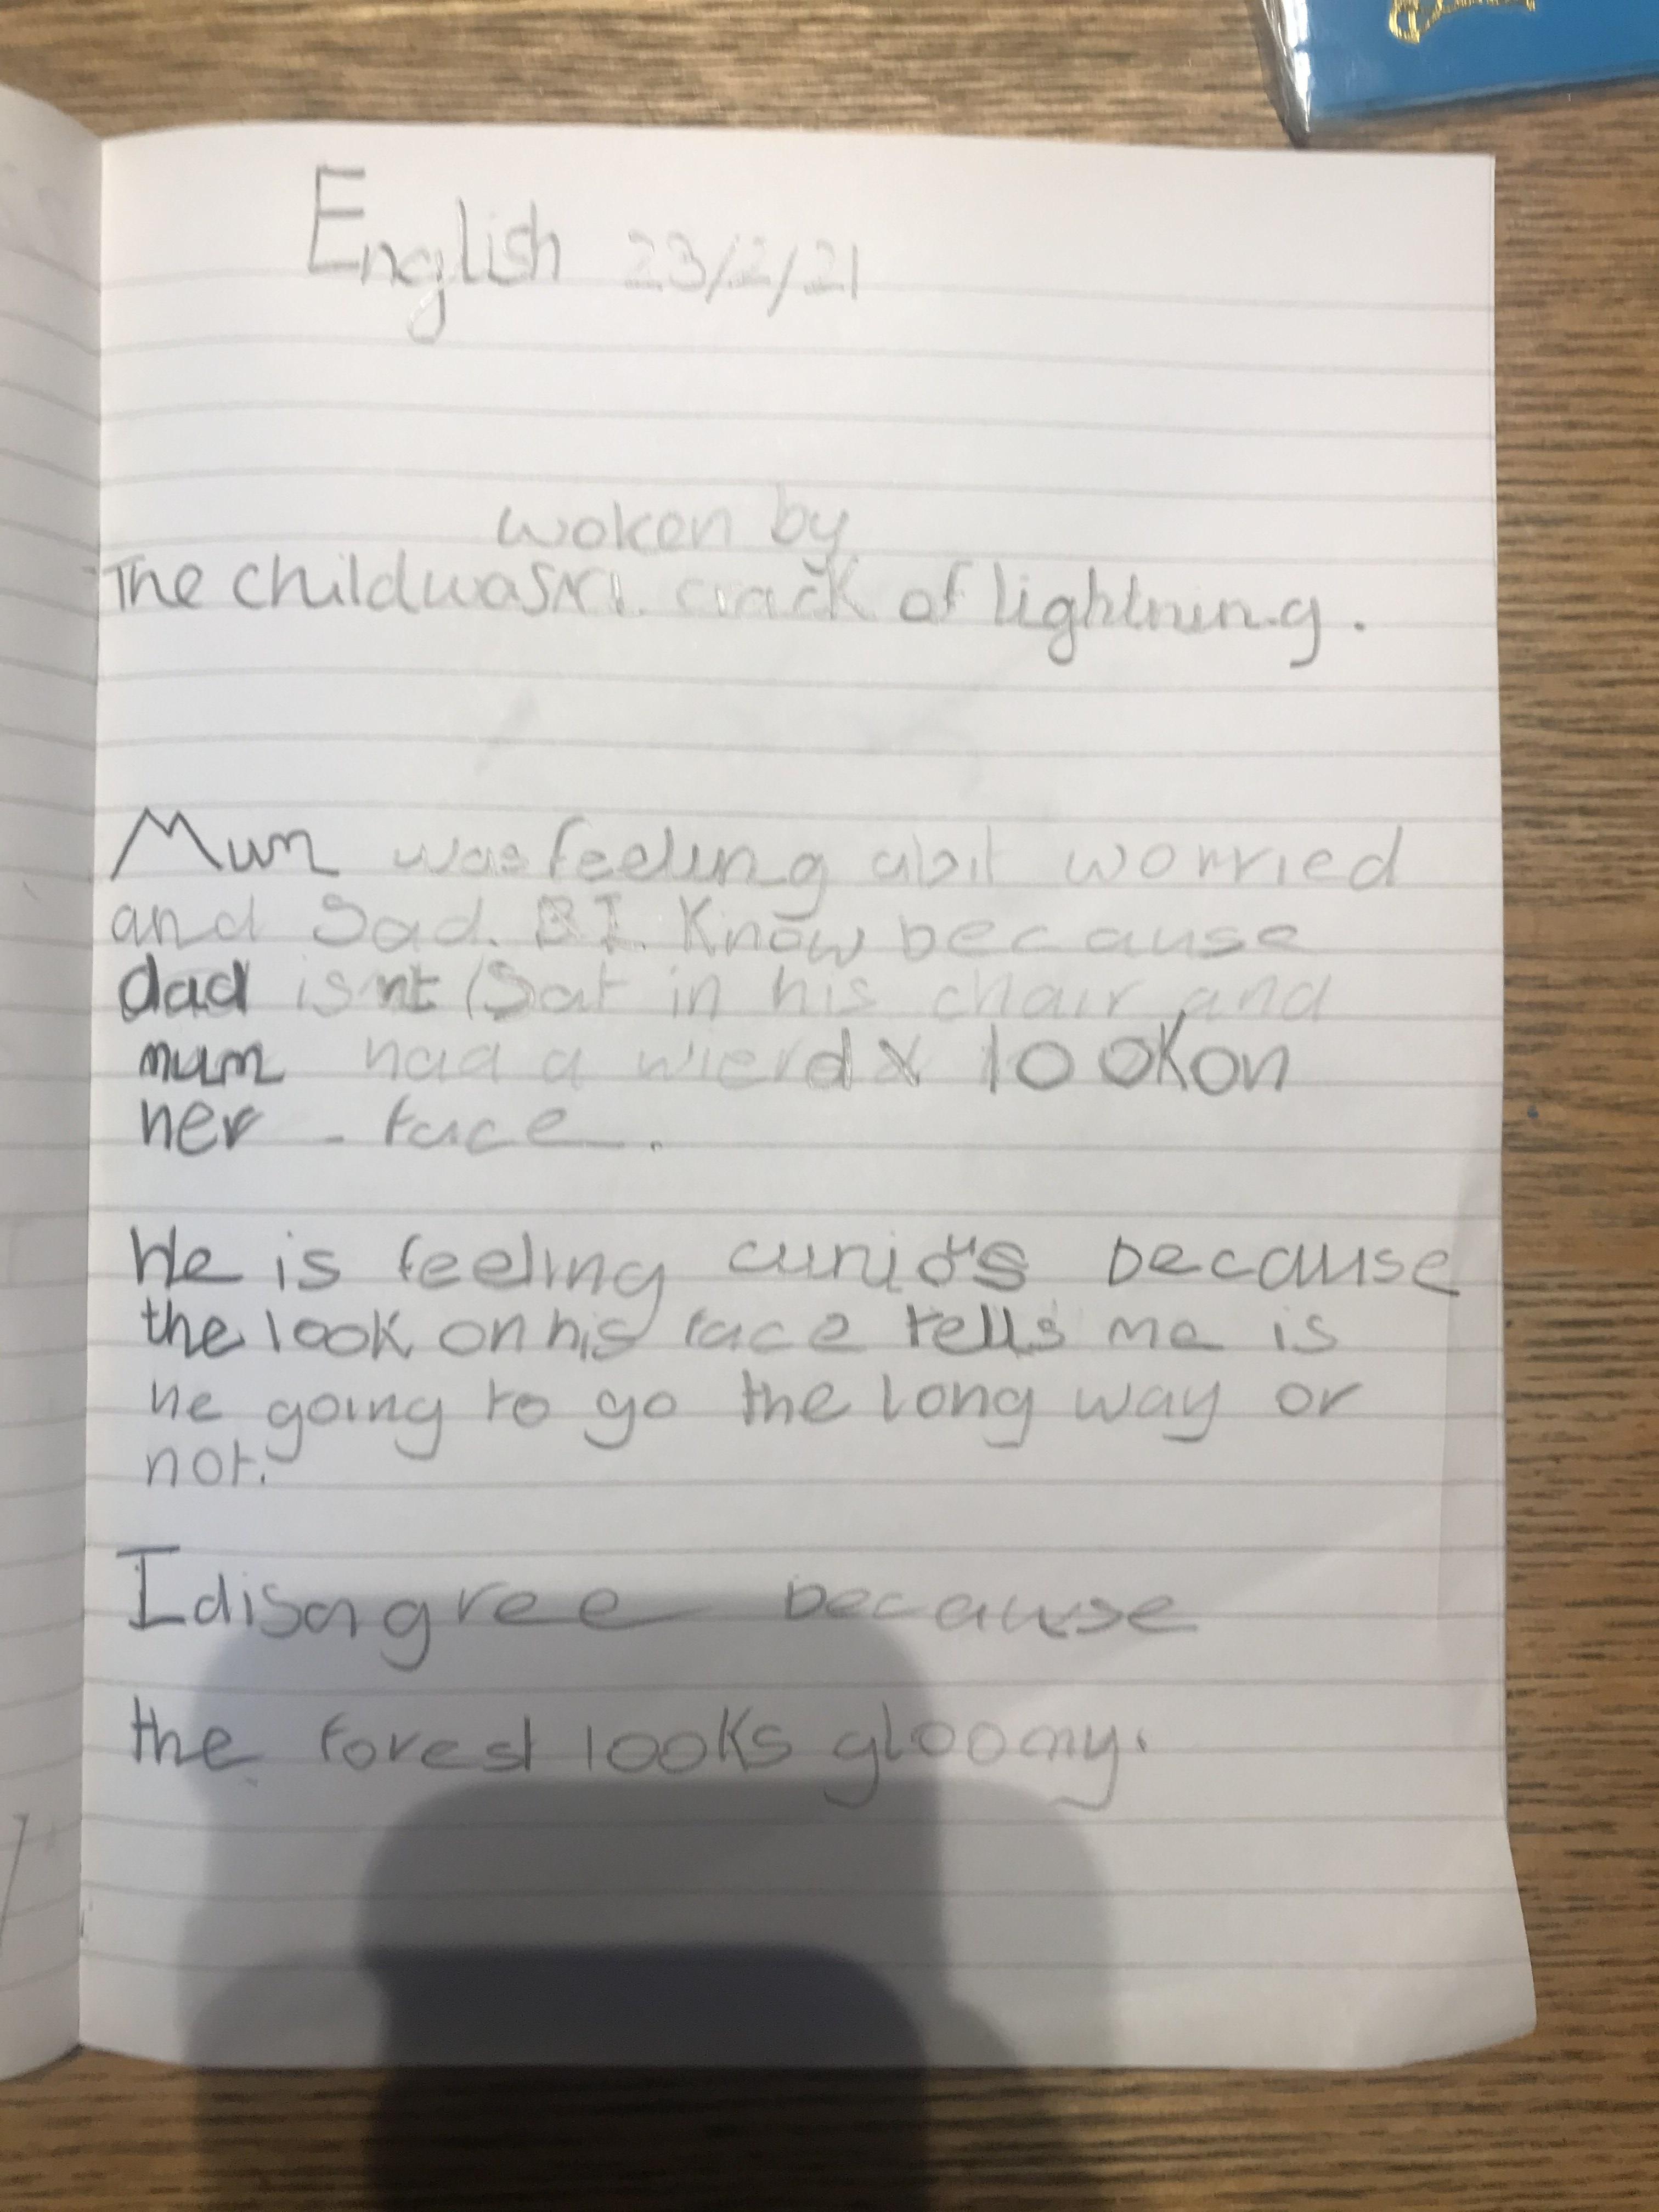 English 23/2/21
woken by
The child was crack of lightning.
Mum was feeling abit worried
and Sad. I Know because
dad isnt Sat in his chair and
mum had a wierd look on
her face.
He is feeling curios because
the look on his face tells me is
he going to go the long way or
not.
I disagree because
the forest looks gloomy.